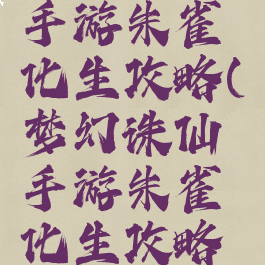 手游朱雀
化生攻略(
梦幻诛仙
手游朱雀
化生攻略